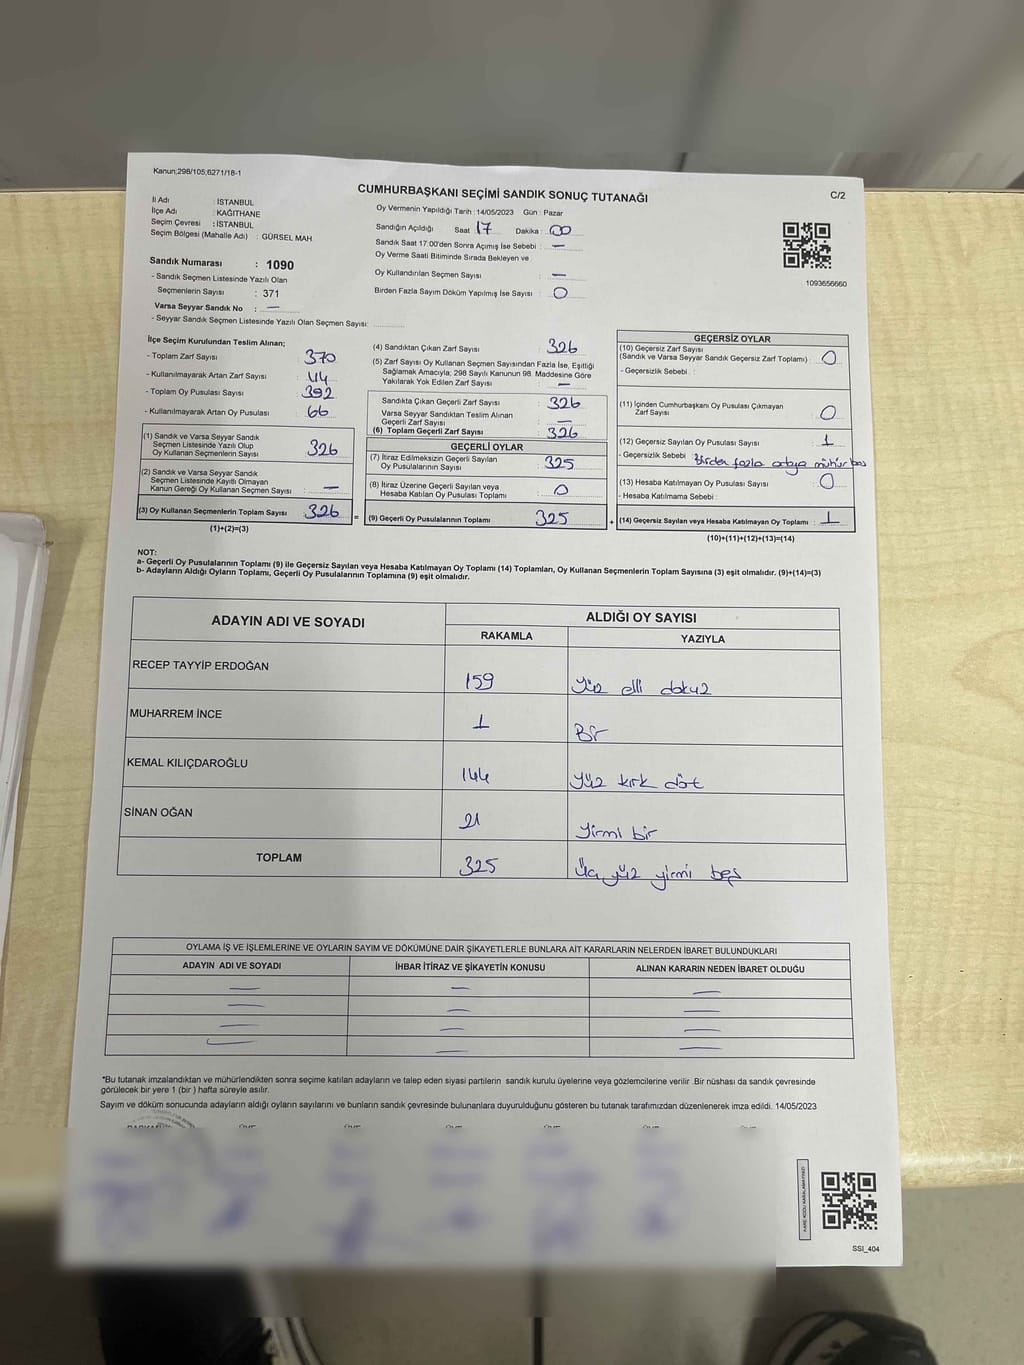 Kanun;298/105;6271/18-1
CUMHURBAŞKANI SEÇİMİ SANDIK SONUÇ TUTANAĞI
C/2
İl Adı : İSTANBUL
İlçe Adı : KAĞITHANE
Seçim Çevresi : İSTANBUL
Seçim Bölgesi (Mahalle Adı) : GÜRSEL MAH.
Sandık Numarası : 1090
- Sandık Seçmen Listesinde Yazılı Olan
Seçmenlerin Sayısı : 371
Varsa Seyyar Sandık No : —
- Seyyar Sandık Seçmen Listesinde Yazılı Olan Seçmen Sayısı: ..............
Oy Vermenin Yapıldığı Tarih : 14/05/2023 Gün : Pazar
Sandığın Açıldığı Saat 17 Dakika : 00
Sandık Saat 17:00'den Sonra Açımış İse Sebebi : —
Oy Verme Saati Bitiminde Sırada Bekleyen ve
Oy Kullandırılan Seçmen Sayısı : —
Birden Fazla Sayım Döküm Yapılmış İse Sayısı : 0
1093656660
İlçe Seçim Kurulundan Teslim Alınan;
- Toplam Zarf Sayısı : 370
- Kullanılmayarak Artan Zarf Sayısı : 44
- Toplam Oy Pusulası Sayısı : 392
- Kullanılmayarak Artan Oy Pusulası : 66
(1) Sandık ve Varsa Seyyar Sandık
Seçmen Listesinde Yazılı Olup
Oy Kullanan Seçmenlerin Sayısı : 326
(2) Sandık ve Varsa Seyyar Sandık
Seçmen Listesinde Kayıtlı Olmayan
Kanun Gereği Oy Kullanan Seçmen Sayısı : —
(3) Oy Kullanan Seçmenlerin Toplam Sayısı : 326 =
(1)+(2)=(3)
(4) Sandıktan Çıkan Zarf Sayısı : 326
(5) Zarf Sayısı Oy Kullanan Seçmen Sayısından Fazla İse, Eşitliği
Sağlamak Amacıyla; 298 Sayılı Kanunun 98. Maddesine Göre
Yakılarak Yok Edilen Zarf Sayısı : —
Sandıkta Çıkan Geçerli Zarf Sayısı : 326
Varsa Seyyar Sandıktan Teslim Alınan
Geçerli Zarf Sayısı : —
(6) Toplam Geçerli Zarf Sayısı : 326
GEÇERLİ OYLAR
(7) İtiraz Edilmeksizin Geçerli Sayılan
Oy Pusulalarının Sayısı : 325
(8) İtiraz Üzerine Geçerli Sayılan veya
Hesaba Katılan Oy Pusulası Toplamı : 0
(9) Geçerli Oy Pusulalarının Toplamı : 325 +
GEÇERSİZ OYLAR
(10) Geçersiz Zarf Sayısı
(Sandık ve Varsa Seyyar Sandık Geçersiz Zarf Toplamı) : 0
- Geçersizlik Sebebi :
(11) İçinden Cumhurbaşkanı Oy Pusulası Çıkmayan
Zarf Sayısı : 0
(12) Geçersiz Sayılan Oy Pusulası Sayısı : 1
- Geçersizlik Sebebi : Birden fazla ortaya mühür bas
(13) Hesaba Katılmayan Oy Pusulası Sayısı : 0
- Hesaba Katılmama Sebebi :
(14) Geçersiz Sayılan veya Hesaba Katılmayan Oy Toplamı : 1
(10)+(11)+(12)+(13)=(14)
NOT:
a- Geçerli Oy Pusulalarının Toplamı (9) ile Geçersiz Sayılan veya Hesaba Katılmayan Oy Toplamı (14) Toplamları, Oy Kullanan Seçmenlerin Toplam Sayısına (3) eşit olmalıdır. (9)+(14)=(3)
b- Adayların Aldığı Oyların Toplamı, Geçerli Oy Pusulalarının Toplamına (9) eşit olmalıdır.
ADAYIN ADI VE SOYADI
ALDIĞI OY SAYISI
RAKAMLA YAZIYLA
RECEP TAYYİP ERDOĞAN 159 Yüz elli dokuz
MUHARREM İNCE 1 Bir
KEMAL KILIÇDAROĞLU 144 Yüz kırk döt
SİNAN OĞAN 21 Yirmi bir
TOPLAM 325 Üç yüz yirmi beş
OYLAMA İŞ VE İŞLEMLERİNE VE OYLARIN SAYIM VE DÖKÜMÜNE DAİR ŞİKAYETLERLE BUNLARA AİT KARARLARIN NELERDEN İBARET BULUNDUKLARI
ADAYIN ADI VE SOYADI İHBAR İTİRAZ VE ŞİKAYETİN KONUSU ALINAN KARARIN NEDEN İBARET OLDUĞU
— — —
— — —
— — —
— — —
*Bu tutanak imzalandıktan ve mühürlendikten sonra seçime katılan adayların ve talep eden siyasi partilerin sandık kurulu üyelerine veya gözlemcilerine verilir .Bir nüshası da sandık çevresinde
görülecek bir yere 1 (bir ) hafta süreyle asılır.
Sayım ve döküm sonucunda adayların aldığı oyların sayılarını ve bunların sandık çevresinde bulunanlara duyurulduğunu gösteren bu tutanak tarafımızdan düzenlenerek imza edildi. 14/05/2023
SSI_404